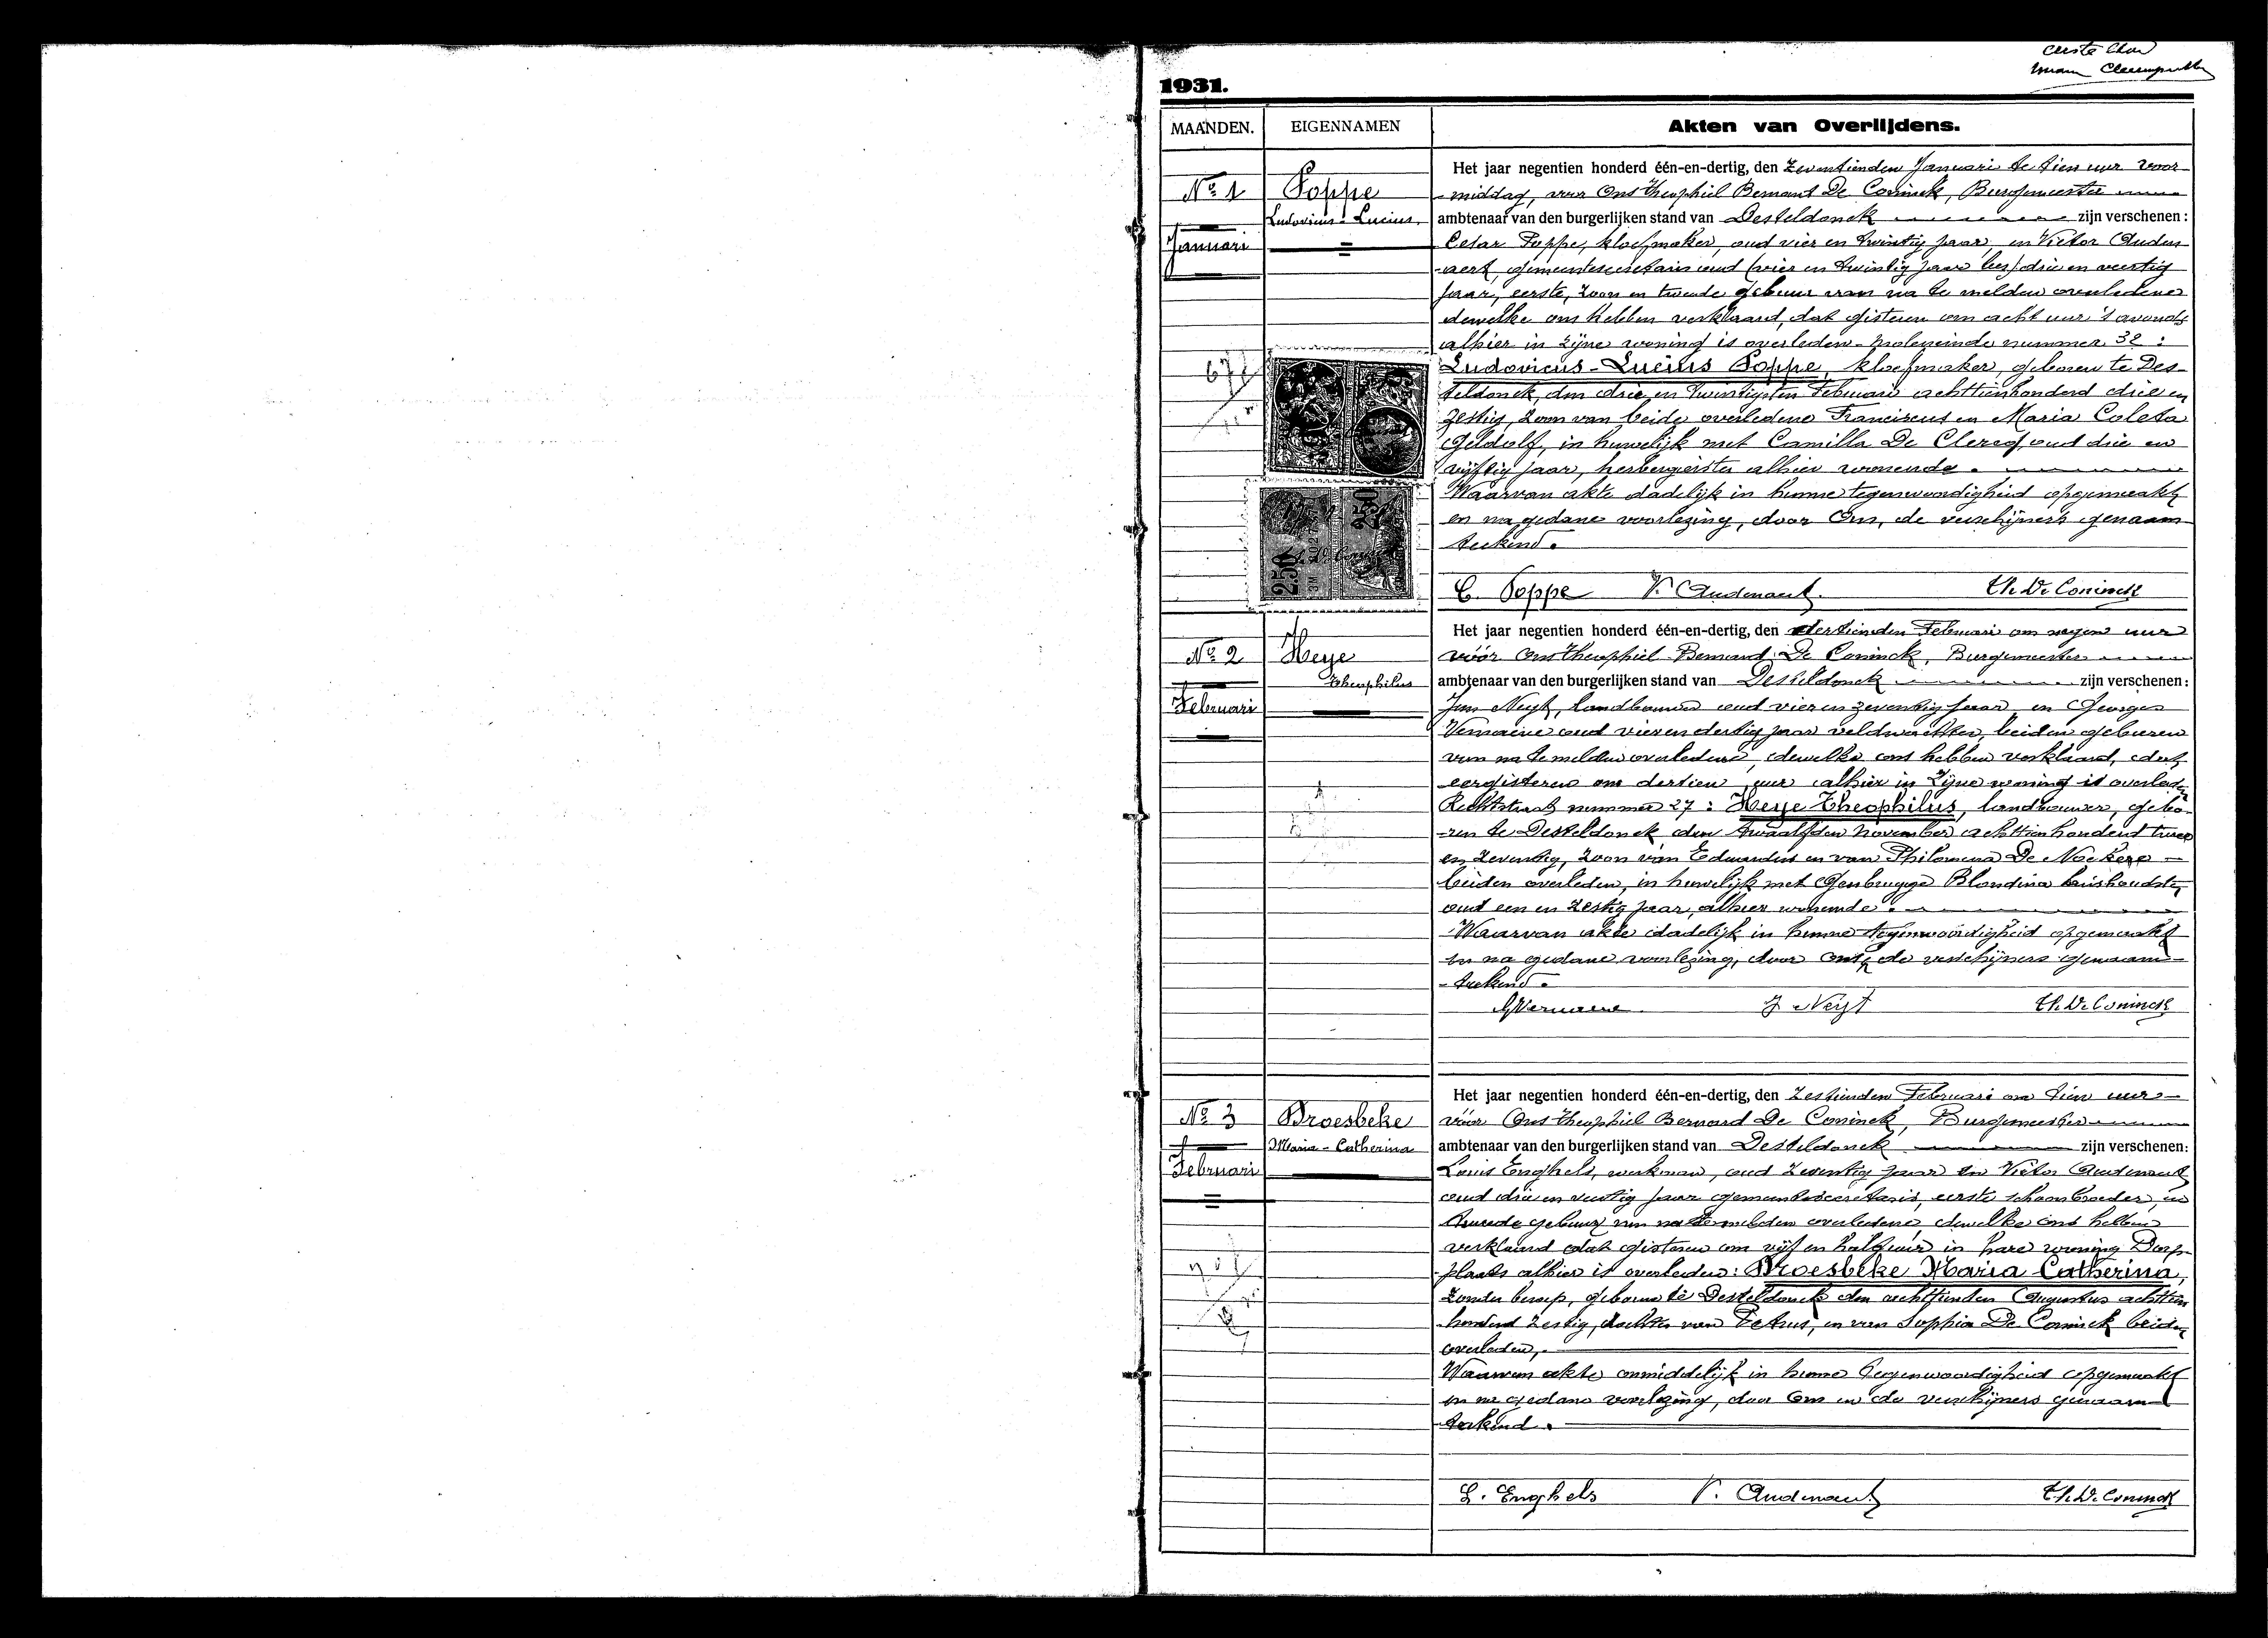 eerste
1931.
MAANDEN. EIGENNAMEN Akten van Overlijdens.
Nº 1
Januari
Poppe
Ludovicus-Lucius
Het jaar negentien honderd één-en-dertig, den Zeventienden Januari te tien uur voor
middag, voor Ons Theophiel Bernard De Coninck, Burgemeester
ambtenaar van den burgerlijken stand van Desteldonck zijn verschenen:
Cesar Poppe, kloefmaker, oud vier en twintig jaar, en Victor Auden
aert, gemeentesecretaris oud (vier en twintig jaar lees) drie en veertig
jaar, eerste, zoon en tweede gebuur van na te melden overledene
dewelke ons hebben verklaard, dat gisteren om acht uur 's avonds
alhier in zijne woning is overleden Moleneinde nummer 32:
Ludovicus-Lucius Poppe, kloefmaker, geboren te Des-
teldonck, den drie en twintigsten Februari achttienhonderd drie en
zestig, zoon van beide overledene Franciscus en Maria Coleta
Geldolf, in huwelijk met Camilla De Clercq oud drie en
vijftig jaar, herbergierster alhier wonende.
Waarvan akte dadelijk in hunne tegenwoordigheid opgemaakt
en na gedane voorlezing, door Ons, de verschijners genaam-
teekend.
C. Poppe V. Audenaert Th. De Coninck
Nº 2
Februari
Heye
Theophilus
Het jaar negentien honderd één-en-dertig, den dertienden Februari om negen uur
vóór Ons Theophiel Bernard De Coninck, Burgemeester
ambtenaar van den burgerlijken stand van Desteldonck zijn verschenen:
Neyt, landbouwer oud vier en zeventig jaar, en Georges
Vernaeve oud vier en dertig jaar veldwachter, beiden geburen
van na te melden overledene, dewelke ons hebben verklaard, dat
eergisteren om dertien uur alhier in zijne woning is overleden
Rechtstraat nummer 27: Heye Theophilus, landbouwer, gebo-
ren te Desteldonck den twaalfden november achttienhonderd twee
en zeventig, zoon van Eduardus en van Philomena De Nockere
beiden overleden, in huwelijk met Genbrugge Blondina huishoudster
oud een en zestig jaar, alhier wonende.
Waarvan akte dadelijk in hunne tegenwoordigheid opgemaakt
en na gedane voorlezing, door ons, de verschijners genaam-
-teekend.
GVernaeve J Neyt Th. De Coninck
Nº 3
Februari
Broesbeke
Maria-Catherina
Het jaar negentien honderd één-en-dertig, den Zestienden Februari om tien uur
vóór Ons Theophiel Bernard De Coninck, Burgemeester
ambtenaar van den burgerlijken stand van Desteldonck zijn verschenen:
Louis Enghels, werkman, oud zeventig jaar en Victor Audenaert
oud drie en veertig jaar gemeentesecretaris, eerste schoonbroeder, en
tweede gebuur van na te melden overledene, dewelke ons hebben
verklaard dat gisteren om vijf en half uur in hare woning Dorp-
plaats alhier is overleden: Broesbeke Maria-Catherina,
zonder beroep, geboren te Desteldonck den achttienden Augustus achttien
honderd zestig, dochter van Petrus, en van Sophia De Coninck beiden
overleden,
Waarvan akte onmiddelijk in hunne tegenwoordigheid opgemaakt
en na gedane voorlezing, door Ons en de verschijners genaam
teekend.
L. Enghels V. Audenaert Th. De Coninck